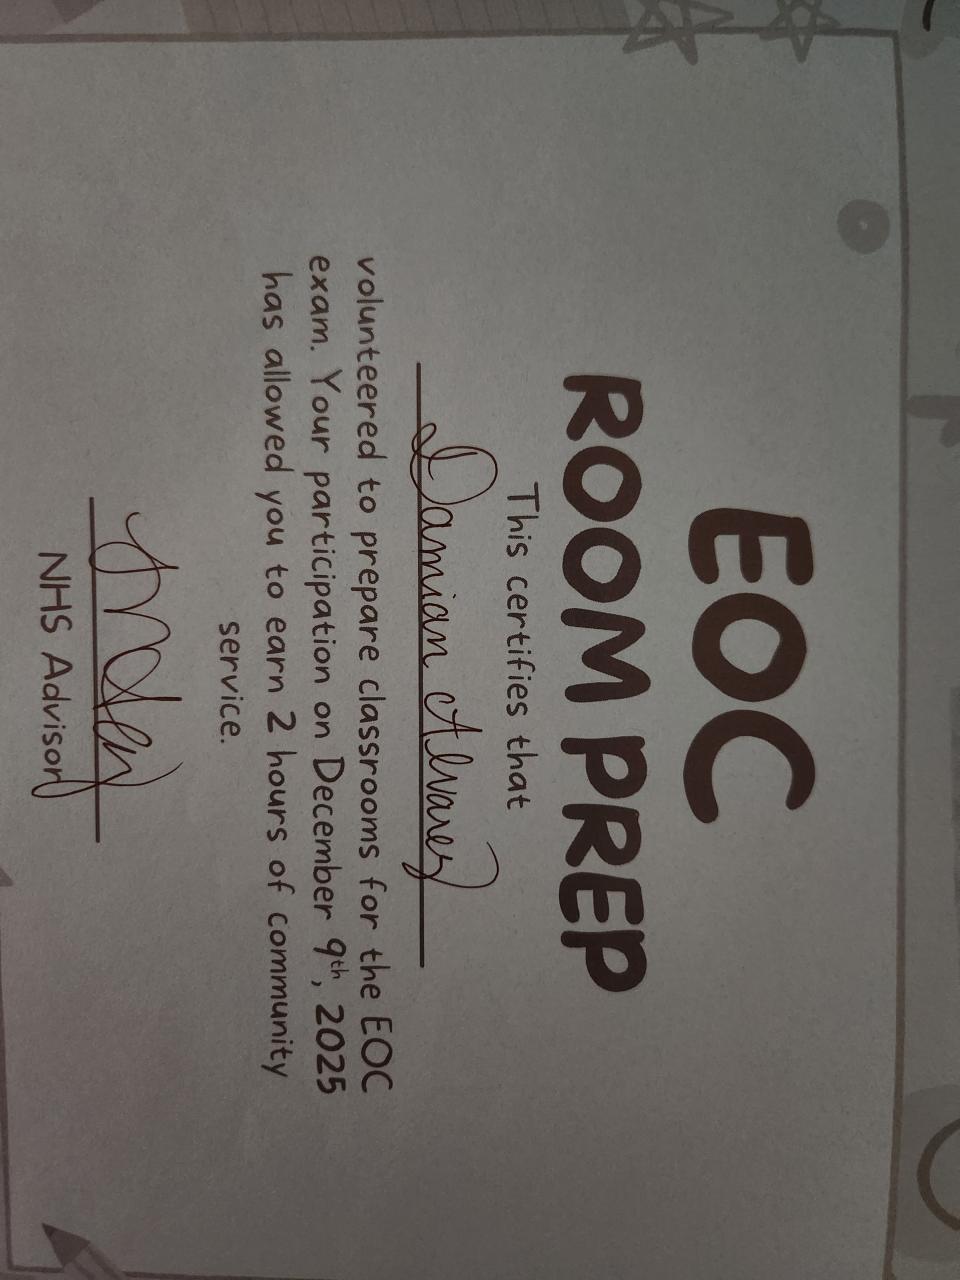 EOC
ROOM PREP
This certifies that
Damian Alvarez
volunteered to prepare classrooms for the EOC
exam. Your participation on December 9th, 2025
has allowed you to earn 2 hours of community
service.
NHS Advisor